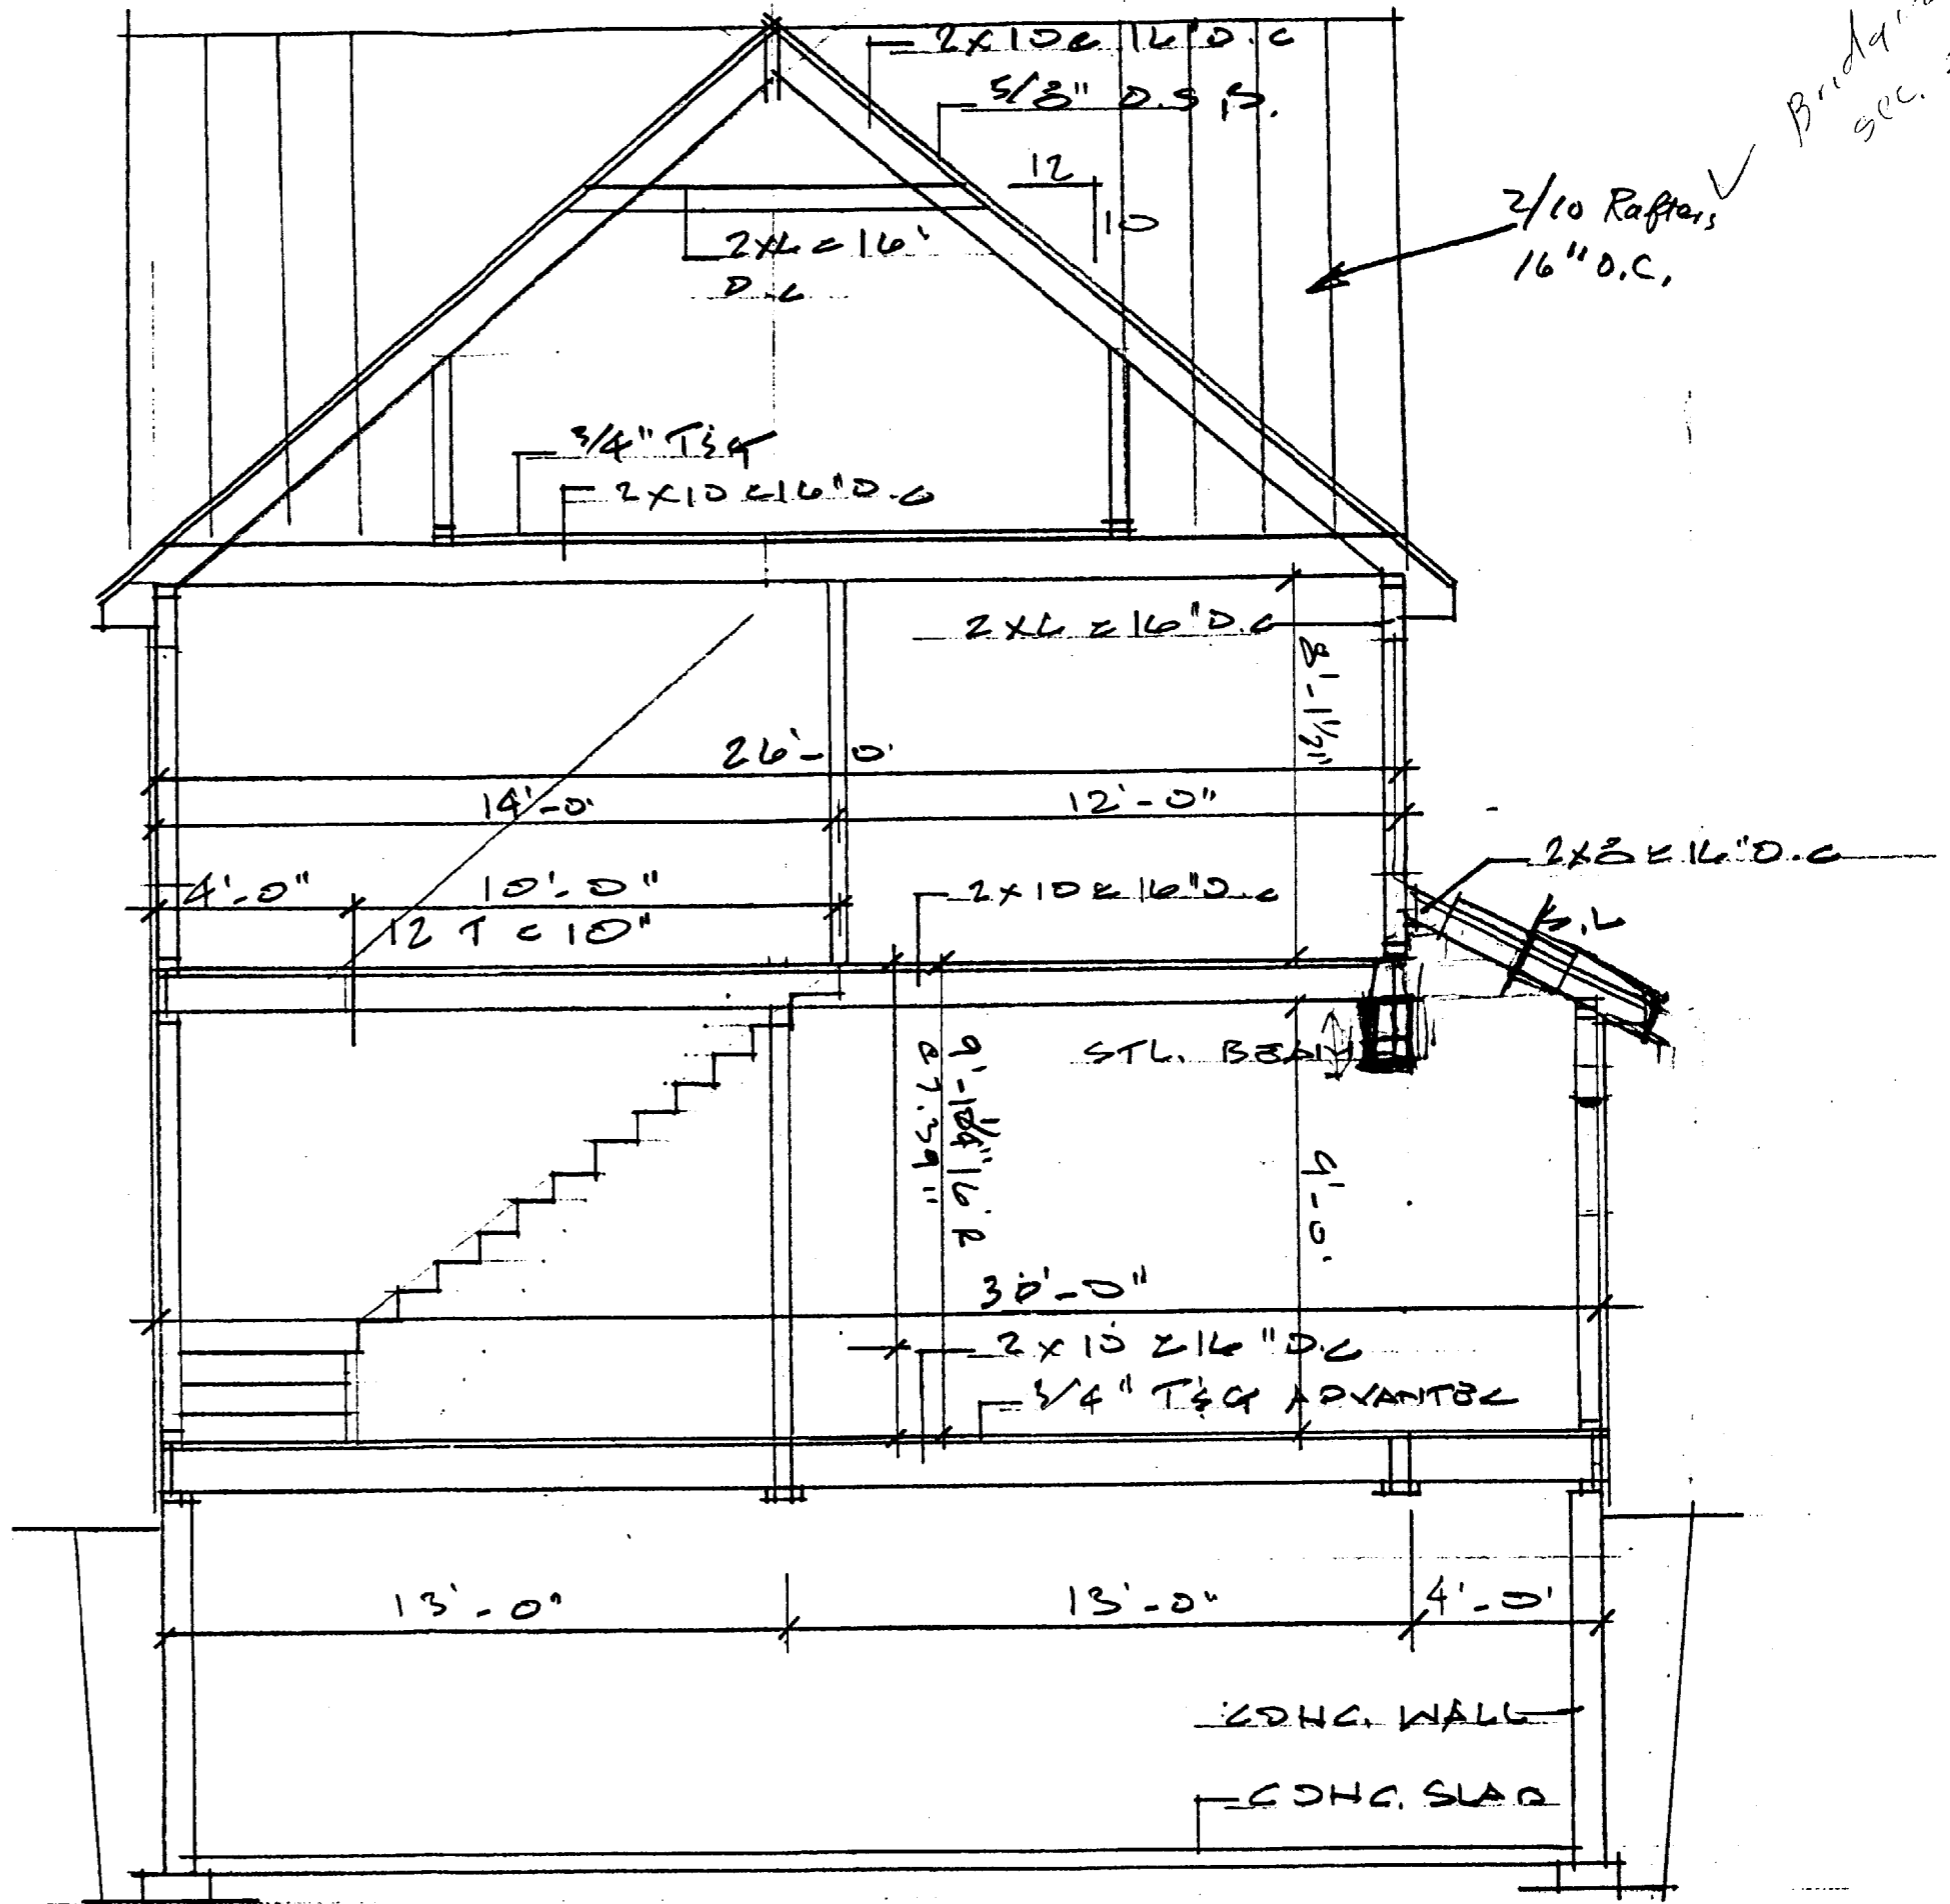 2x10 @ 16" O.C
5/8" O.S.B.
12
10
2x6 @ 16"
O.C
2/10 Rafters
16" O.C.
3/4" T&G
2x10 @ 16" O.C
2x6 @ 16" O.C
8'-1 1/2"
26'-0"
14'-0"
12'-0"
2x8 @ 16" O.C
4'-0"
10'-0"
2x10 @ 16" O.C
12 T @ 10"
S.L
STL. BEAM
16 R
@ 7.39"
9'-0"
30'-0"
2x10 @ 16" O.C
3/4" T&G ADVANTEC
13'-0"
13'-0"
4'-0"
CONC. WALL
CONC. SLAB